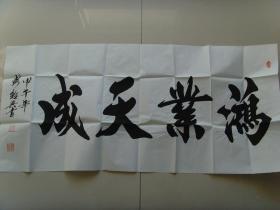 鴻業天成
甲午年